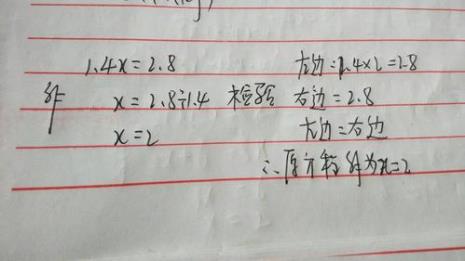 1.4x=2.8 左边=1.4×2=2.8
解 x=2.8÷1.4 检验 右边=2.8
x=2 左边=右边
∴原方程解为x=2